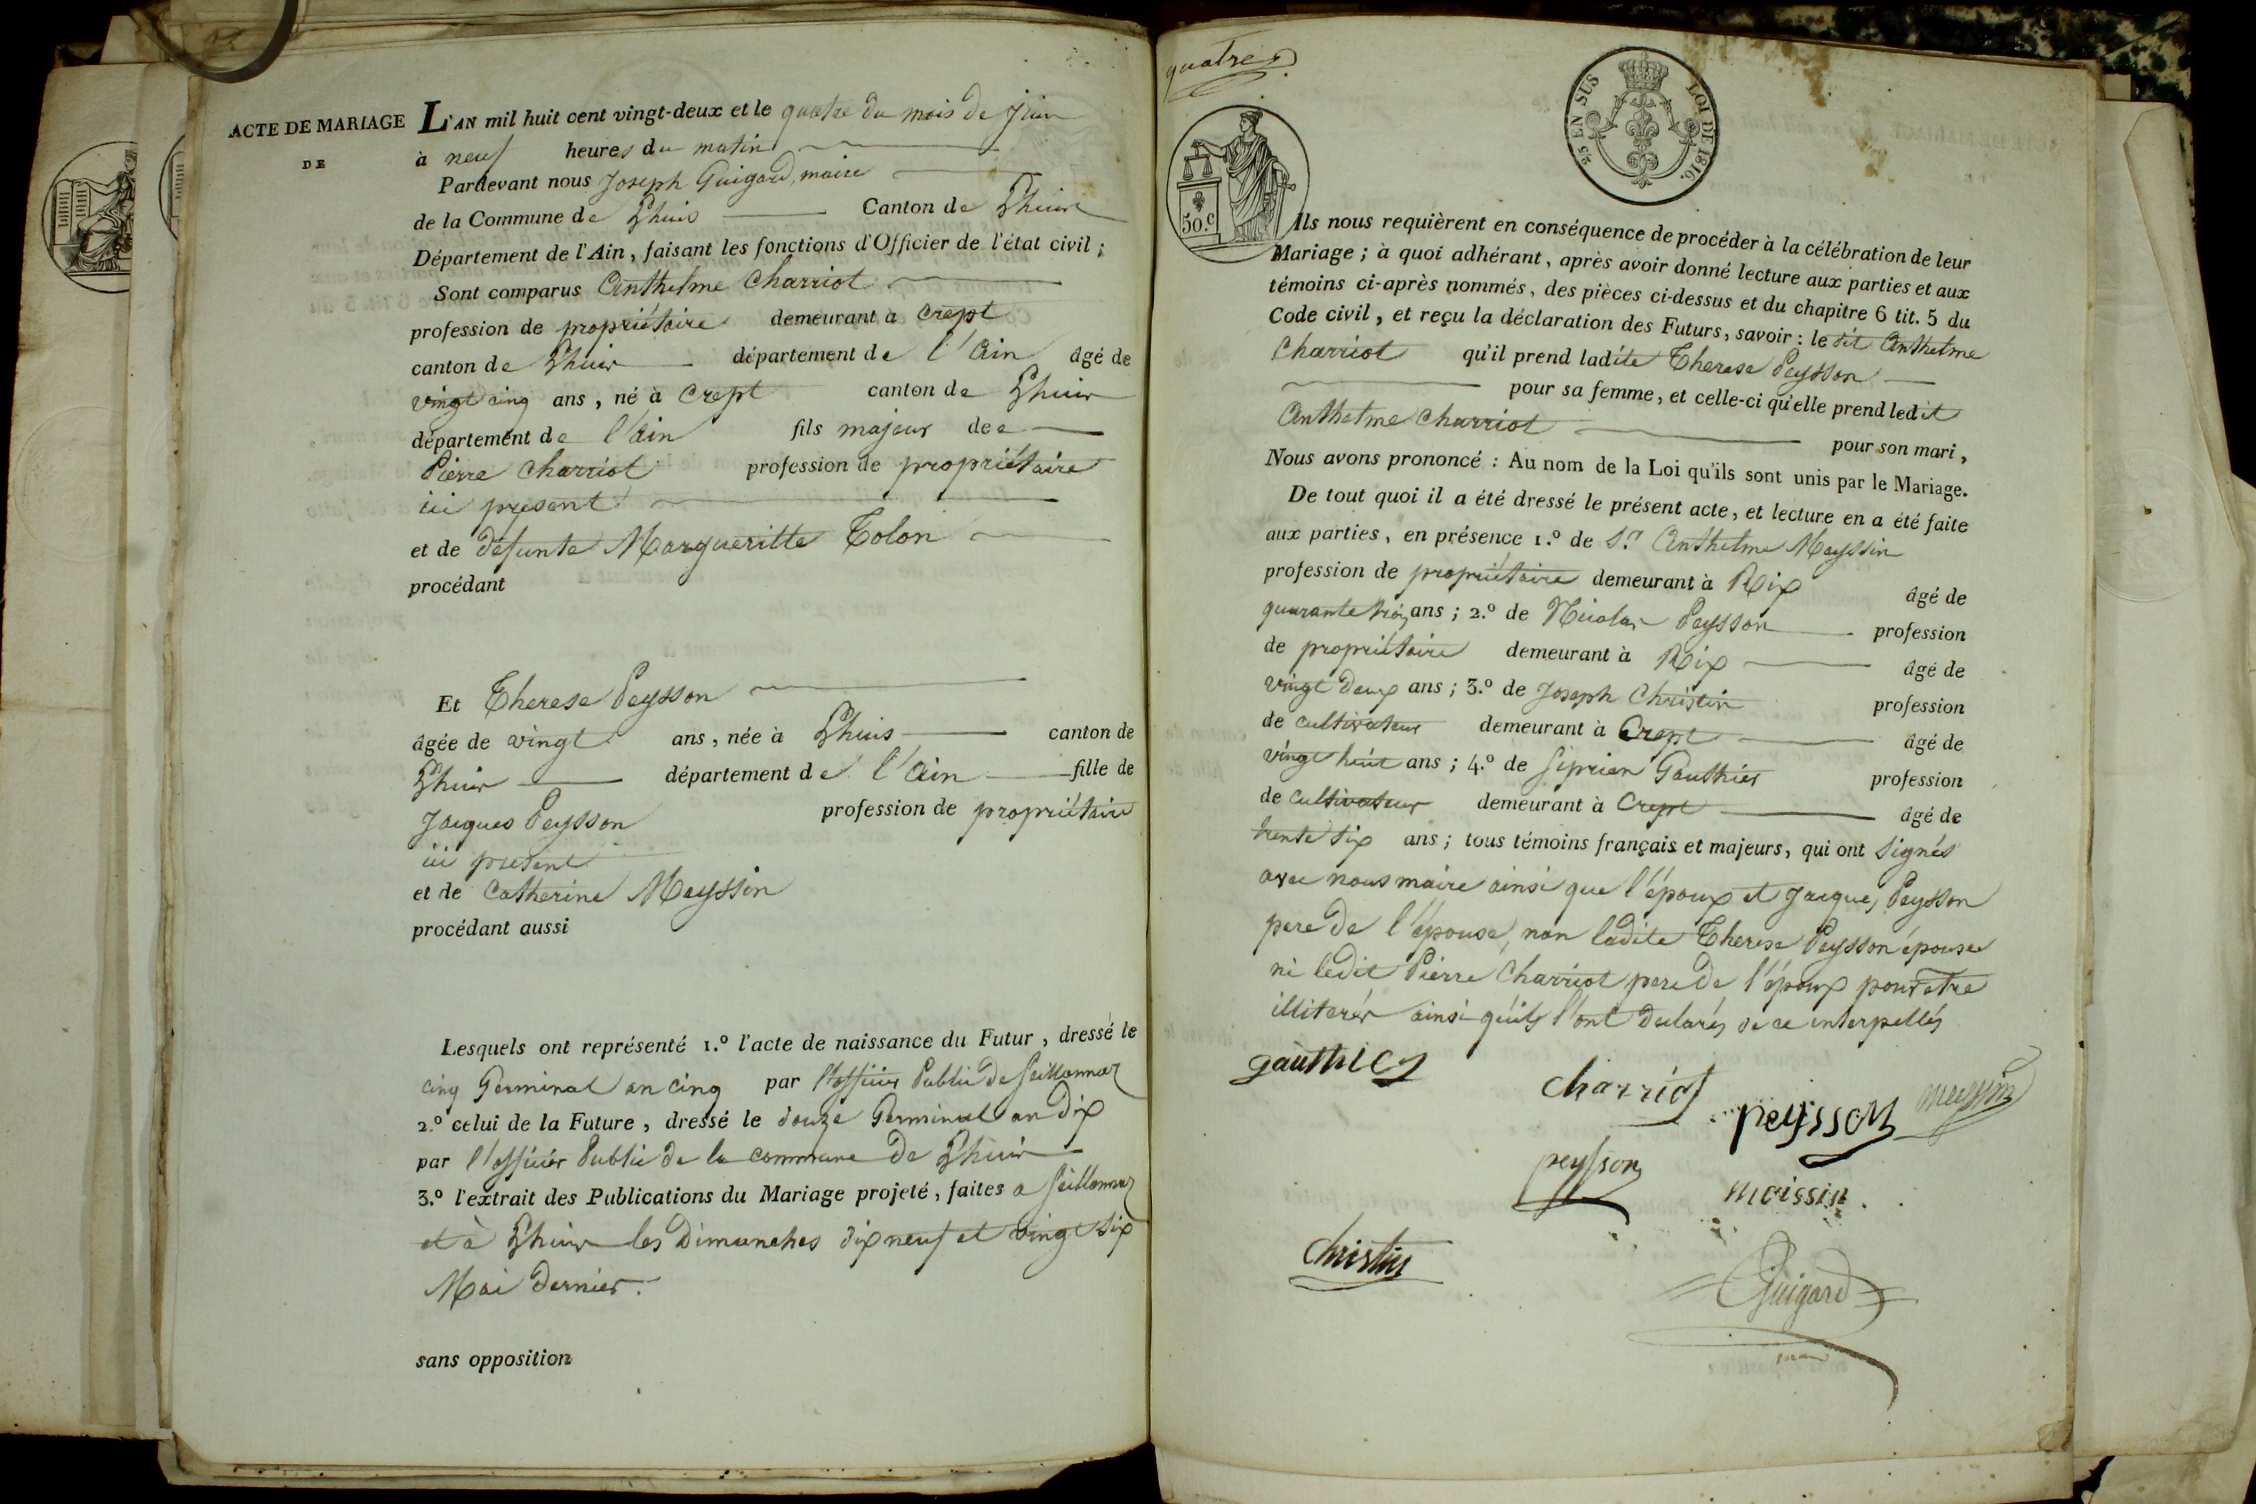 ACTE DE MARIAGE
DE
L'AN mil huit cent vingt-deux et le quatre du mois de Juin
à neuf heures du matin
Pardevant nous Joseph Guigard, maire
de la Commune de Lhuis Canton de Lhuis
Département de l'Ain, faisant les fonctions d'Officier de l'état civil ;
Sont comparus Anthelme Charriot
profession de propriétaire demeurant à Crept
canton de Lhuis département de l'Ain âgé de
vingt cinq ans, né à Crept canton de Lhuis
département de l'ain fils majeur de
Pierre Charriot profession de propriétaire
ici present
et de défunte Margueritte Tolon
procédant
Et Therese Peysson
âgée de vingt ans, née à Lhuis canton de
Lhuis département de l'Ain fille de
Jacques Peysson profession de propriétaire
ici present
et de Catherine Meyssin
procédant aussi
Lesquels ont représenté 1.º l'acte de naissance du Futur, dressé le
cinq Germinal an cinq par l'officier Public de Seillonnaz
2.º celui de la Future, dressé le douze Germinal an dix
par l'officier Public de la commune de Lhuis
3.º l'extrait des Publications du Mariage projeté, faites a Seillonnaz
et à Lhuis les Dimanches dix neuf et vingt six
Mai dernier.
sans opposition
quatre
25 EN SUS LOI DE 1816.
50.c
Ils nous requièrent en conséquence de procéder à la célébration de leur
Mariage ; à quoi adhérant, après avoir donné lecture aux parties et aux
témoins ci-après nommés, des pièces ci-dessus et du chapitre 6 tit. 5 du
Code civil, et reçu la déclaration des Futurs, savoir : le dit Anthelme
Charriot qu'il prend ladite Therese Peysson
pour sa femme, et celle-ci qu'elle prend ledit
Anthelme Charriot pour son mari,
Nous avons prononcé : Au nom de la Loi qu'ils sont unis par le Mariage.
De tout quoi il a été dressé le présent acte, et lecture en a été faite
aux parties, en présence 1.º de S.r Anthelme Meyssin
profession de propriétaire demeurant à Rix âgé de
quarante trois ans ; 2.º de Nicolas Peysson profession
de propriétaire demeurant à Rix âgé de
vingt deux ans ; 3.º de Joseph Christin profession
de cultivateur demeurant à Crept âgé de
vingt huit ans ; 4.º de Siprien Gauthier profession
de cultivateur demeurant à Crept âgé de
trente six ans ; tous témoins français et majeurs, qui ont signés
avec nous maire ainsi que l'époux et Jacques Peysson
pere de l'épouse, non ladite Therese Peysson épouse
ni ledit Pierre Charriot pere de l'époux pour etre
illiterés ainsi qu'ils l'ont declarés de ce interpellés
gauthier
charriot
peysson
meyssin
peysson
moissin
Christin
Guigard
maire